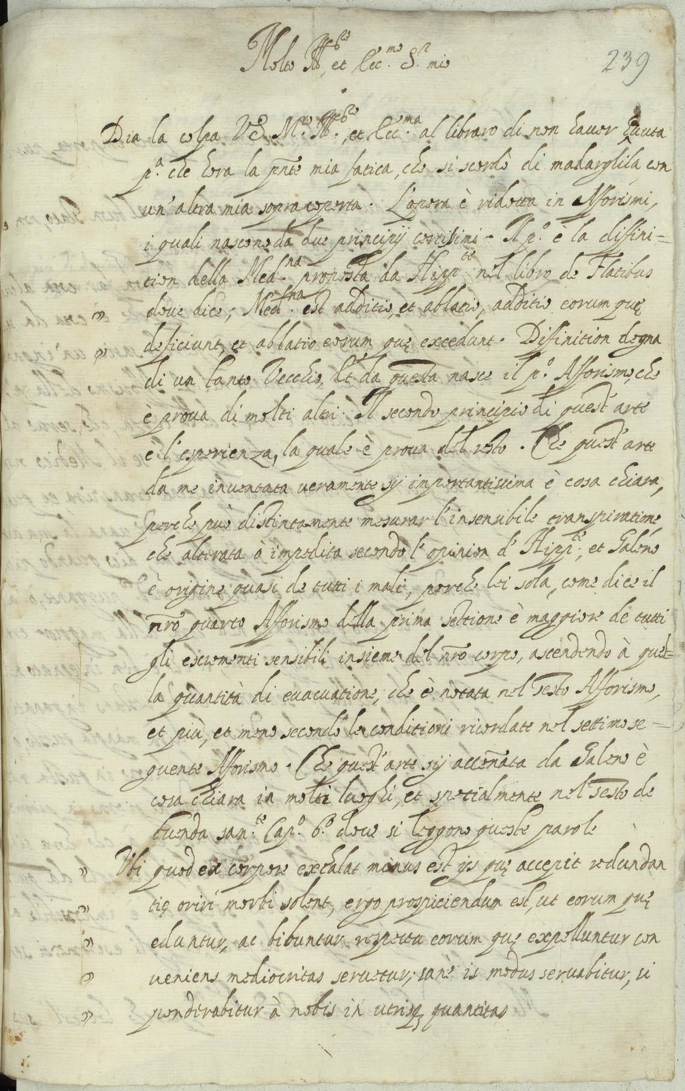 Molto Ill.re et Ecc.mo S.r mio
239
Dia la colpa V.S. M.to Ill.re, et Ecc.ma al libraro di non haver havuta
p.a che hora la pnte mia fatica, che si scordò di madarglila con
un'altra mia sopracoperta. L'opera è ridotta in Afforismi,
i quali nascono da due principij certissimi. Il p.o è la diffini=
tion della Med.na proposta da Hipp.te nel libro de Flatibus
dove dice; Med.na est additio, et ablatio, additio eorum quę
deficiunt, et ablatio eorum quę excedunt. Difinition degna
di un tanto Vecchio, et da questa nasce il p.o Afforismo, che
è prova di molti altri. Il secondo principio di quest'arte
è l'esperienza, la quale è prova del resto. Che quest'arte
da me inventata veramente sij importantissima è cosa chiara,
perche può distintamente mesurar l'insensibile transpiratione
che alterata ò impedita secondo l'opinion d'Hipp.e, et Galeno
è origine quasi de tutti i mali, perche lei sola, come dice il
nro quarto Afforismo della prima settione è maggiore de tutti
gli escrementi sensibili insieme del nro corpo, ascendendo à quel=
la quantità di evacuatione, che è notata nel sesto Afforismo,
et più, et meno secondo le conditioni ricordate nel settimo se=
guente Afforismo. Che quest'arte sij accennata da Galeno è
cosa chiara in molti luoghi, et specialmente nel sesto de
tuenda san.te Cap.o 6.o dove si leggono queste parole
Ubi quod ex corpore exhalat minus est ijs quę accepit redundan
tię oriri morbi solent, ergo prospiciendum est, ut eorum quę
eduntur, ac bibuntur respectu eorum quę expelluntur con
veniens mediocritas servetur, sane is modus servabitur, si
ponderabitur à nobis in utrisq; quantitas